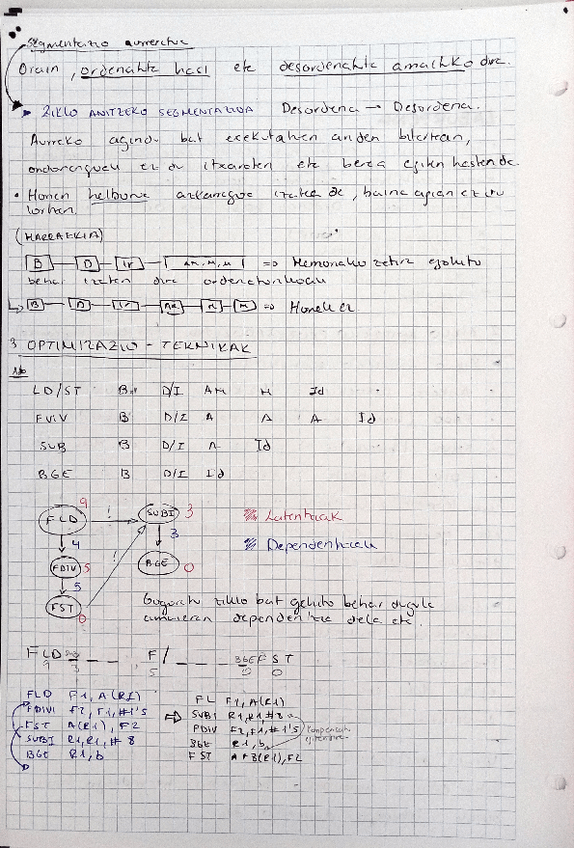 Segmentazio aurreratua
Orain, ordenahte hasi eta desordenahte amaituko dira.
ZIKLO ANITZEKO SEGMENTAZIOA Desordena → Desordena.
Aurreko agindu bat exekutatzen ari den bitartean,
ondorengoak ez du itxaroten eta berea egiten hasten da.
• Honen helburua azkarragoa izatea da, baina agian ez du
lortzen.
(HARRAZKIA)
B D Ir AM, M, M =>
behar izaten dira
B D Ir AM M M => Honek ez
3 OPTIMIZAZIO - TEKNIKAK
LD/ST B D/I AM M Id
FDIV B D/I A A A Id
SUB B D/I A Id
BGE B D/I Id
9 3
FLD ! SUBI Latentziak
4 3 Dependentziak
FDIV 5 ! BGE 0
5
FST 0
Gogoratu ziklo bat gehitu behar dugula
amaieran dependentzia dela eta.
FLD F/ BGE FST
9 3 5 0 0
FLD F1, A(R1)
FDIVI F2, F1, #1'5
FST A(R1), F2
SUBI R1, R1, #8
BGE R1, b
FL F1, A(R1)
SUBI R1, R1 #8
FDIV F2, F1, #1'5
BGE R1, b
FST A+8(R1), F2